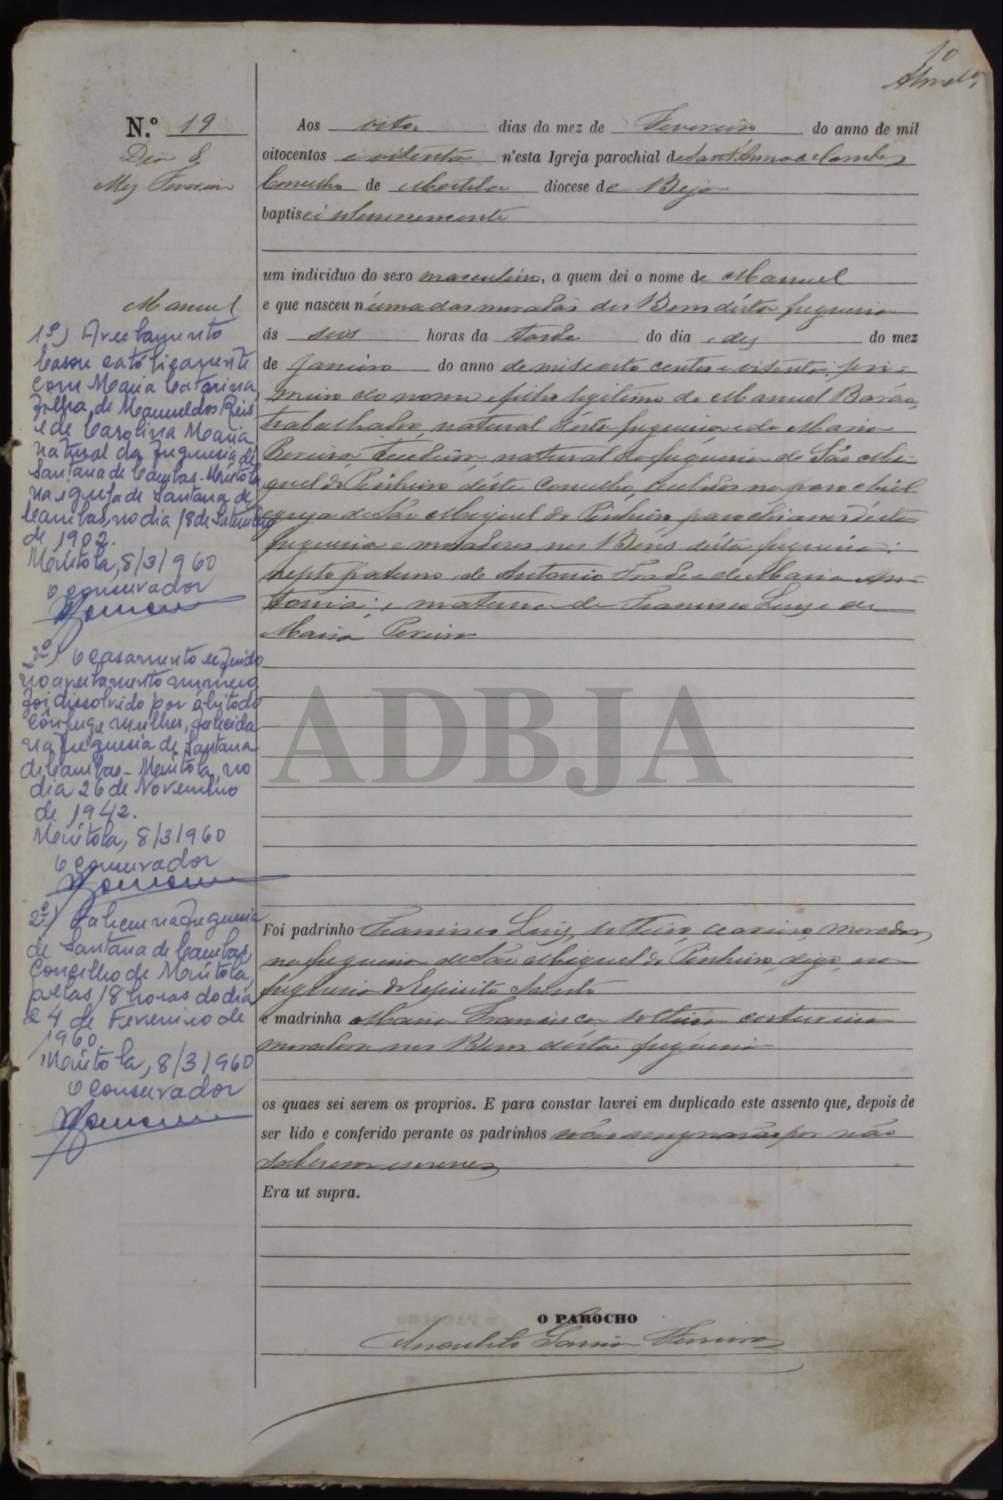 10
N.º 19
Dia 8
Mez Fevereiro
Manuel
Aos oito dias do mez de Fevereiro do anno de mil
oitocentos e oitenta n'esta Igreja parochial de Sant'Anna de Cambas
Concelho de Mertola diocese de Beja
baptisei solemnemente
um individuo do sexo masculino, a quem dei o nome de Manuel
e que nasceu n'uma das moradas dos Bens d'esta freguesia
ás seis horas da tarde do dia dez do mez
de Janeiro do anno de mil oito centos e oitenta, pri-
meiro do nome e filho legitimo de Manuel Barão,
trabalhador, natural d'esta freguesia e de Maria
Pereira natural da freguesia de São Mi-
guel do Pinheiro d'este Concelho, recebidos na parochial
egreja de São Miguel do Pinheiro, parochianos d'esta
freguesia e moradores nos Bens d'esta freguesia:
nepto paterno de Antonio e de Maria An-
tonia; e materno de Francisco Luiz e de
Maria Pereira
Foi padrinho Francisco Luiz, solteiro, morador
na freguesia de São Miguel do Pinheiro, digo, na
freguesia do Espirito Santo
e madrinha Maria Francisca solteira costureira
moradora nos Bens d'esta freguesia
os quaes sei serem os proprios. E para constar lavrei em duplicado este assento que, depois de
ser lido e conferido perante os padrinhos não assignarão por não
saberem escrever
Era ut supra.
O PAROCHO
Ferreira
1º) Averbamento
Casou católicamente
com Maria Catarina,
filha de Manuel dos Reis
e de Carolina Maria
natural da freguesia de
Santana de Cambas - Mértola
na igreja de Santana de
Cambas, no dia 18 de Setembro
de 1902.
Mértola, 8/3/960
O conservador
2º) O casamento referido
no averbamento número 1
foi dissolvido por óbito do
cônjuge mulher, falecida
na freguesia de Santana
de Cambas - Mértola, no
dia 26 de Novembro
de 1942.
Mértola, 8/3/960
O conservador
Faleceu na freguesia
de Santana de Cambas,
Concelho de Mértola,
pelas 18 horas do dia
24 de Fevereiro de
1960.
Mértola, 8/3/960
O conservador
ADBJA